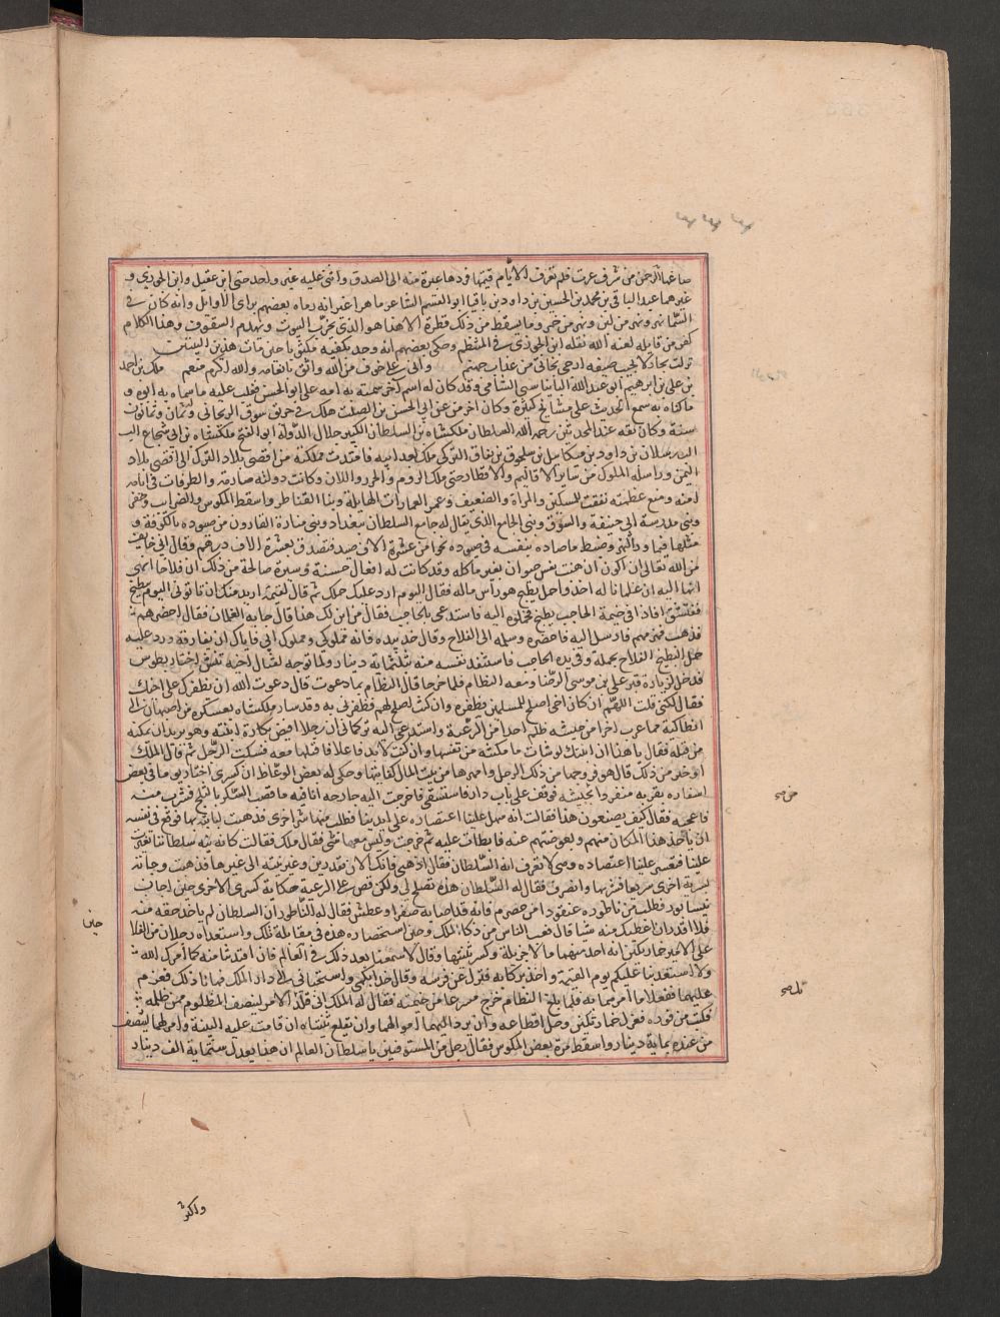 صاغها الرحمن من شرف عزت فلم تعرف الأيام قيمتها فردها غيرة منه الى الصدف وأثنى عليه غير واحد حتى ابن عقيل وابن الجوزي و
غيرهما عبد الباقي بن محمد بن الحسين بن داود بن باقيا ابو القسم الشاعر ماهرا غير انه رماه بعضهم براى الاوايل وانه كان في
السما نهر من لبن ونهر من خمر وما يسقط من ذلك قطرة الا هذا هو الذي يخرب البيوت ويهدم السقوف وهذا الكلام
كفر من قايله لعنه الله نقله ابن الجوذي في المنتظم وحكى بعضهم انه وجد بكفيه مكتوبا حين مات هذين البيتين
نزلت بجار لا يخيب ضيفه ارجى نجاتي من عذاب جهنم واني على خوف من الله واثق بانعامه والله اكرم منعم ملك بن احمد
بن علي بن ابراهيم ابو عبد الله البانياسي الشامي وقد كان له اسم آخر سمته به امه على ابو الحسن فغلب عليه ما سماه به ابوه و
ما كناه به سمع الحديث على مشايخ كثيرة وكان آخر من عن ابي الحسن بن الصلت هلك في حريق سوق الريحاني وثمان وثمانون
سنة وكان ثقه عند المحدثين رحمه الله السلطان ملكشاه بن السلطان الكبير جلال الدولة ابو الفتح ملكشاه بن ابي شجاع الب
ارسلان بن داود بن ميكاييل بن سلجوق بن تقاق التركي ملك بعد ابيه فامتدت مملكته من اقصى بلاد الترك الى اقصى بلاد
اليمن وراسله الملوك من ساير الاقاليم والاقطار حتى ملك الروم والخزر واللان وكانت دولته صارمة والطرقات في ايامه
آمنة ومع عظمته يقف للمسكين والمراة والضعيف وعمر العمارات الهايلة وبنا القناطر واسقط المكوس والضرايب وحفر
وبنى مدرسة ابي حنيفة والسوق وبنى الجامع الذي يقال له جامع السلطان ببغداد وبنى منارة القرون من صيوده بالكوفة و
مثلها فيما وراء النهر وضبط ما صاده بنفسه في صيوده نحوا من عشرة الاف صيد فتصدق بعشرة الاف درهم وقال اني خايف
من الله تعالى ان اكون ازهقت نفس حيوان بغير ماكله وقد كانت له افعال حسنة وسيرة صالحة من ذلك ان فلاحا انهى
انها اليه ان غلمانا له اخذوا حمل بطيخ هو رأس ماله فقال اليوم ارد عليك حملك ثم قال لقيمه اريد منك ان تاتوني اليوم ببطيخ
ففتشو فاذا في خيمة الحاجب بطيخ فحملوه اليه فاستدعى بالحاجب فقال من اين لك هذا قال جابه الغلمان فقال احضرهم
فذهب فهربهم فارسل اليه فاحضره وسلمه الى الفلاح وقال خذ بيده فانه مملوكي ومملوك ابي فاياك ان تفارقه ورد عليه
حمل البطيخ الفلاح بحمله وفي يده الحاجب فاستنقذ نفسه منه بثلثماية دينار ولما توجه لقتال اخيه تتش اجتاز بطوس
فدخل لزيارة قبر علي بن موسى الرضا ومعه النظام فلما خرجا قال النظام بما دعوت قال دعوت الله ان يظفرك على اخيك
فقال لكني قلت اللهم ان كان اخي اصلح للمسلمين فظفره وان كنت اصلح لهم فظفرني به وقد سار ملكشاه بعسكره من اصبهان الى
انطاكية فما عرف ان احدا من جيشه ظلم احدا من الرعية واستدعى اليه تركماني ان رجلا افتض بكارة ابنته وهو يريد ان يمكنه
من قتله فقال يا هذا ان ابنتك لو شات ما مكنته من نفسها وان كنت لا بد فاعلا فاقتلها معه فسكت الرجل ثم قال الملك
او خير من ذلك قال هو فزوجها من ذلك الرجل وامهرها من بيت المال كفايتها وحكى له بعض الوعاظ ان كسرى اجتاز يوما في بعض
اسفاره بقرية منفردا بجيشه فوقف على باب دار فاستسقى فاخرجت اليه جارية انا فيه ما قصب السكر بالثلج فشرب منه
فاعجبه فقال كيف يصنعون هذا فقالت انه سهل علينا اعتصاره على ايدينا فطلب منها شربا اخرى فذهبت لتاتيه بها فوقع في نفسه
ان ياخذ هذا المكان منهم ويعوضهم عنه فابطات عليه ثم خرجت وليس معها شئ فقال ملك فقالت كانه نية سلطاننا تغيرت
علينا فتعسر علينا اعتصاره وهي لا تعرف انه السلطان فقال اذهبي فانك الآن تقدرين وغير نيته الى غيرها فذهبت وجاته
بشربة اخرى سريعا فشربها وانصرف فقال له السلطان هذه تصلح لي ولكن قص على الرعية حكاية كسرى الاخرى حين اجتاز
نيسابور فطلب من ناطوره عنقودا من حصرم فانه قد اصابه صفرا وعطش فقال له الناطور ان السلطان لم ياخذ حقه منه
فلا اقدر ان اعطيك منه شئا قال فعجب الناس من ذكاء الملك وحسن استحضاره هذه في مقابلة تلك واستعداه رجلان من الفلا
على الامير خمارتكين انه اخذ منهما مالا جزيلا وكسر ثنيتهما وقال لا سمعنا بعدلك في العالم فان اقدتنا منه كما امرك الله
ولا استعدينا عليكم يوم القيمة واخذ بركابه فنزل عن فرسه وقال خذا بكمي واسحباني الى دار الملك فهابا ذلك فعزم
عليهما ففعلا ما امرهما به فلما بلغ النظام خرج مسرعا من خيمته فقال له الملك اني قلدتك الامر لتنصف المظلوم ممن ظلمه
فكتب من فوره فعزل خمارتكين وحل اقطاعه وان يرد اليهما اموالهما وان يقلع ثنيتاه ان قامت عليه البينة وامر لهما
من عنده بماية دينار واسقط مرة بعض المكوس فقال رجل من المستوفيين يا سلطان العالم ان هذا يعدل ستماية الف دينار
واكثر